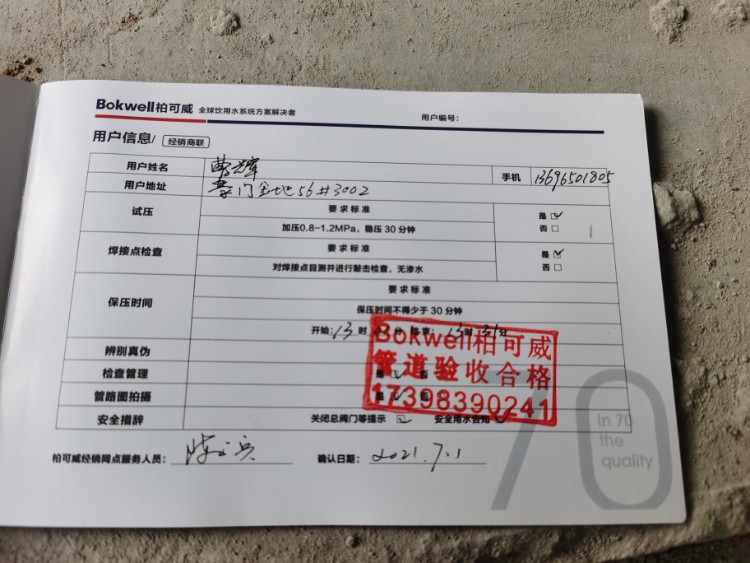 Bokwell柏可威 全球饮用水系统方案解决者 用户编号:
用户信息/ 经销商联
用户姓名 曹辉 手机 13696501805
用户地址 金地56#3002
试压 要求标准 是
加压0.8~1.2MPa，稳压30分钟 否
焊接点检查 要求标准 是
对焊接点目测并进行敲击检查，无渗水 否
保压时间 要求标准
保压时间不得少于30分钟
开始: 13时 分 结束: 时 31分
辨别真伪
检查管理 是 否
管路图拍摄
安全措辞 关闭总阀门等提示 安全用水告知
Bokwell柏可威
管道验收合格
17398390241
70
In 70
the
quality
柏可威经销网点服务人员: 确认日期: 2021.7.1